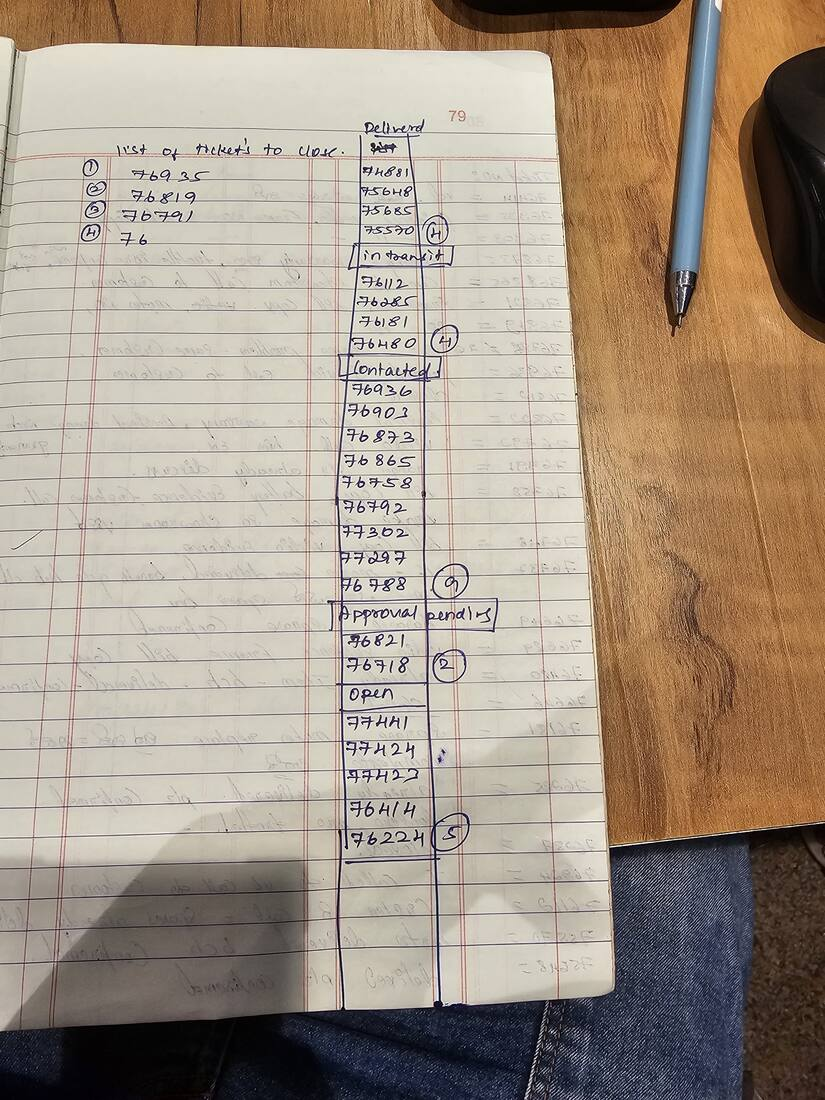 79
List of Ticket's to close.
① 76935
② 76819
③ 76791
④ 76
Deliverd
74881
75648
75685
75570 ④
in transit
76112
76285
76181
76480 ④
Contacted
76936
76903
76873
76865
76758
76792
77302
77297
76788 ⑨
Approval pending
76821
76718 ②
Open
77441
77424
77423
76414
76224 ⑤